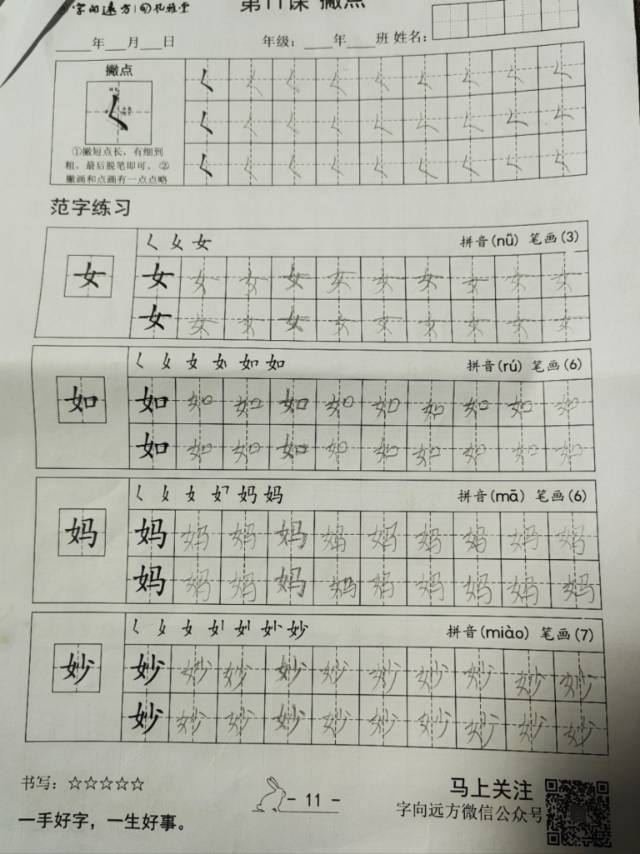 字向远方
第11课 撇点
____年___月___日 年级：____年___班 姓名：
撇点
①撇短点长，有细到
粗，最后脱笔即可。②
撇画和点画有一点点略
范字练习
拼音(nǚ) 笔画(3)
女 女
女
拼音(rú) 笔画(6)
如 如 如 如 如 如 如 如 如 如 如
如 如 如 如 如 如 如 如 如 如
拼音(mā) 笔画(6)
妈 妈 妈 妈 妈 妈 妈 妈 妈 妈 妈
妈 妈 妈 妈 妈 妈 妈 妈 妈 妈
拼音(miào) 笔画(7)
妙 妙 妙 妙 妙 妙 妙 妙 妙 妙 妙
妙 妙 妙 妙 妙 妙 妙 妙 妙 妙
书写：☆☆☆☆☆
一手好字，一生好事。
- 11 -
马上关注
字向远方微信公众号